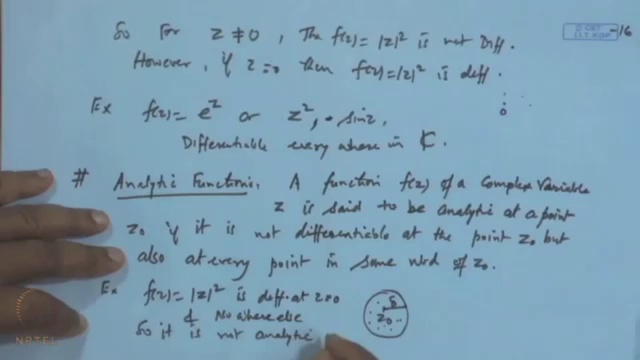 So For z ≠ 0, The f(z) = |z|² is not Diff.
However, if z = 0 then f(z) = |z|² is diff.
Ex f(z) = e^z or z², sin z,
Differentiable every where in ℂ.
# Analytic Functions. A function f(z) of a Complex Variable
z is said to be analytic at a point
z₀ if it is not differentiable at the point z₀ but
also at every point in some nbd of z₀.
Ex f(z) = |z|² is diff. at z=0
& No where else
So it is not analytic
δ
z₀
0
I.I.T. KGP
-16
NPTEL